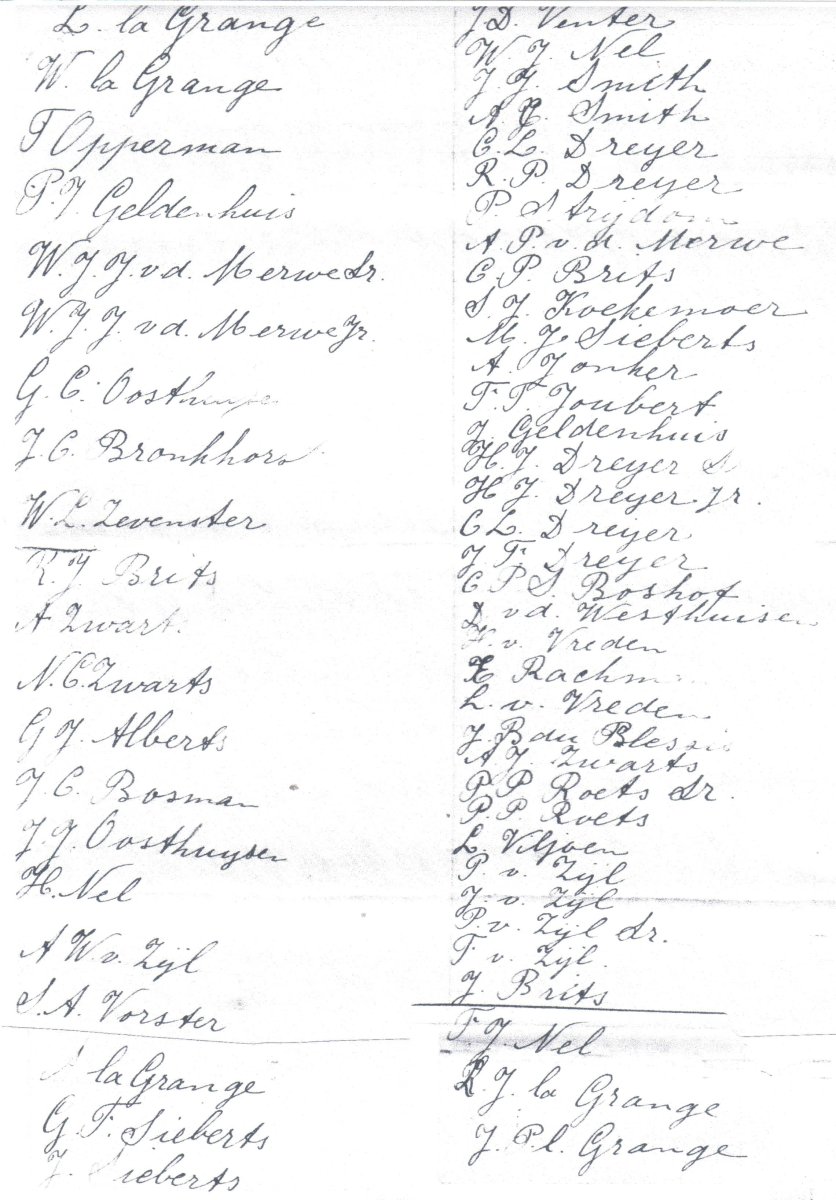 L. la Grange
W. la Grange
F Opperman
P. J. Geldenhuis
W. J. J. v d. Merwe Sr.
W. J. J. v d. Merwe Jr.
G. C. Oosthuyse
J. C. Bronkhors
W. L. Zevenster
R. J Brits
A Zwart
N. C. Zwarts
G J. Alberts
J C. Bosman
J. J. Oosthuysen
H. Nel
A W. v. Zijl
S. A. Vorster
la Grange
G. F. Sieberts
J. Sieberts
J D. Venter
W. J. Nel
J. J. Smith
A. Smith
C. L. Dreyer
R. P. Dreyer
P. Strijdom
A P. v. d. Merwe
C. P. Brits
S J. Koekemoer
M. J. Sieberts
A. Jonker
F. F. Joubert
J. Geldenhuis
H. J. Dreyer S
H J. Dreyer. Jr.
C L. Dreijer
J F. Dreyer
C P S. Boshof
D. v d. Westhuisen
H. v. Vreden
Rachm
L. v. Vreden
J. B du Plessis
A J. Zwarts
P. P Roets Sr.
P. P. Roets
L. Viljoen
P. v. Zijl
J. v. Zijl
P. v. Zijl Sr.
F. v. Zijl.
J. Brits
F. J. Nel
J. la Grange
J. P. l. Grange